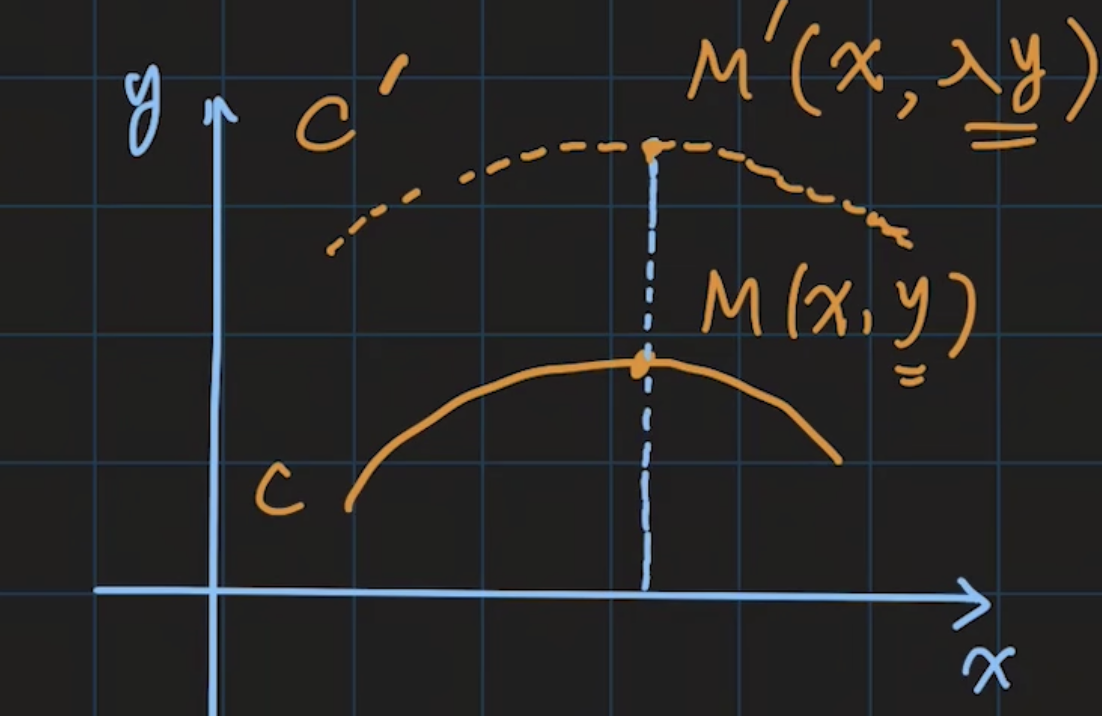 y
C'
M'(x, λy)
M(x, y)
C
x